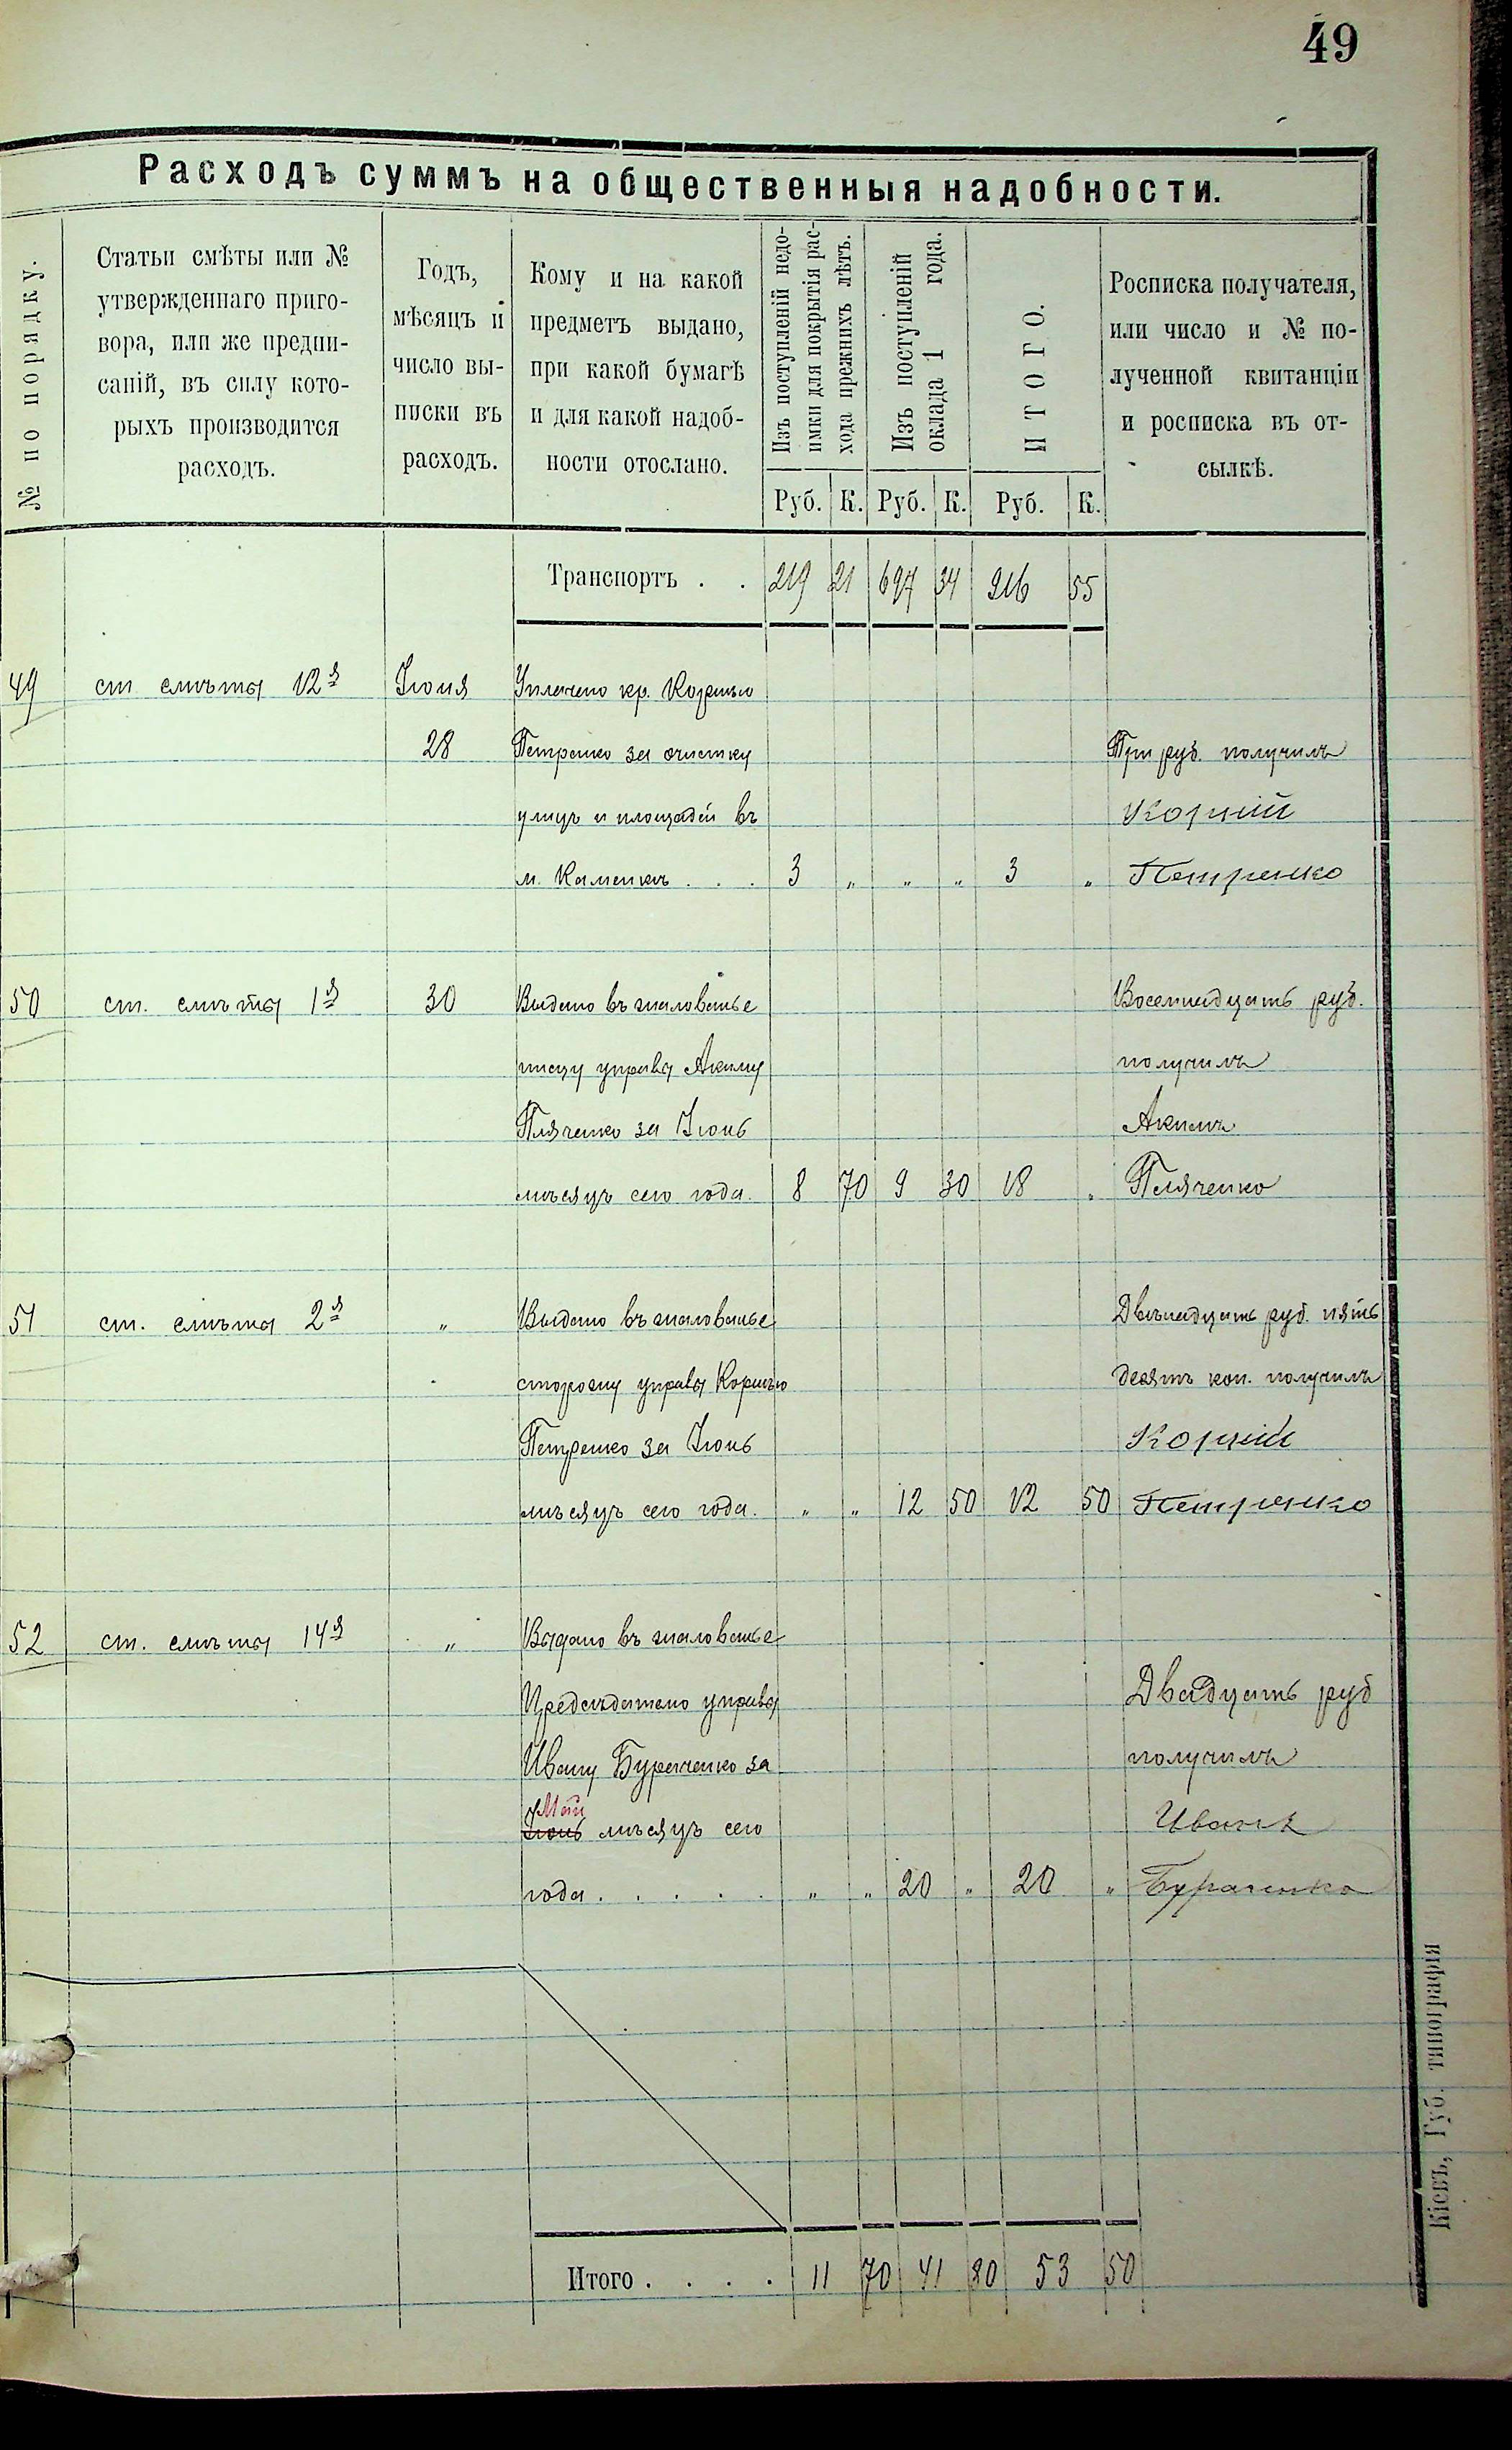 49
Расходъ суммъ на общественныя надобности.
№ по порядку.
Статьи смѣты или № утвержденнаго приго-вора, или же предпи-саній, въ силу кото-рыхъ производится расходъ.
Годъ, мѣсяцъ и число вы-писки въ расходъ.
Кому и на какой предметъ выдано, при какой бумагѣ и для какой надоб-ности отослано.
Изъ поступленій недо-имки для покрытія рас-хода прежнихъ лѣтъ.
Изъ поступленій оклада 1 года.
ИТОГО.
Росписка получателя, или число и № по-лученной квитанціи и росписка въ от-сылкѣ.
Руб. К. Руб. К. Руб. К.
Транспортъ . . 219 21 697 34 916 55
49 ст смѣты 12я Іюня Уплачено кр. Корнѣю
28 Петренко за очистку Три руб. получилъ
улицъ и площадей въ Корній
м. Каменкѣ . . . 3 „ „ „ 3 „ Петренко
50 ст. смѣты 1я 30 Выдано въ жалованье Восемнадцать руб.
писцу управы Акиму получилъ
Пляченко за Іюнь Акимъ
мѣсяцъ сего года. 8 70 9 30 18 „ Пляченко
51 ст. смѣты 2я „ Выдано въ жалованье Двѣнадцать руб. пять
сторожу управы Корнѣю десятъ коп. получилъ
Петренко за Іюнь Корній
мѣсяцъ сего года. „ „ 12 50 12 50 Петренко
52 ст. смѣты 14я „ Выдано въ жалованье
Предсѣдателю управы Двадцать руб
Ивану Бураченко за получилъ
Май
Іюнь мѣсяцъ сего Иванъ
года . . . . . „ „ 20 „ 20 „ Бураченко
Итого . . . . 11 70 41 80 53 50
Кіевъ, Губ. типографія